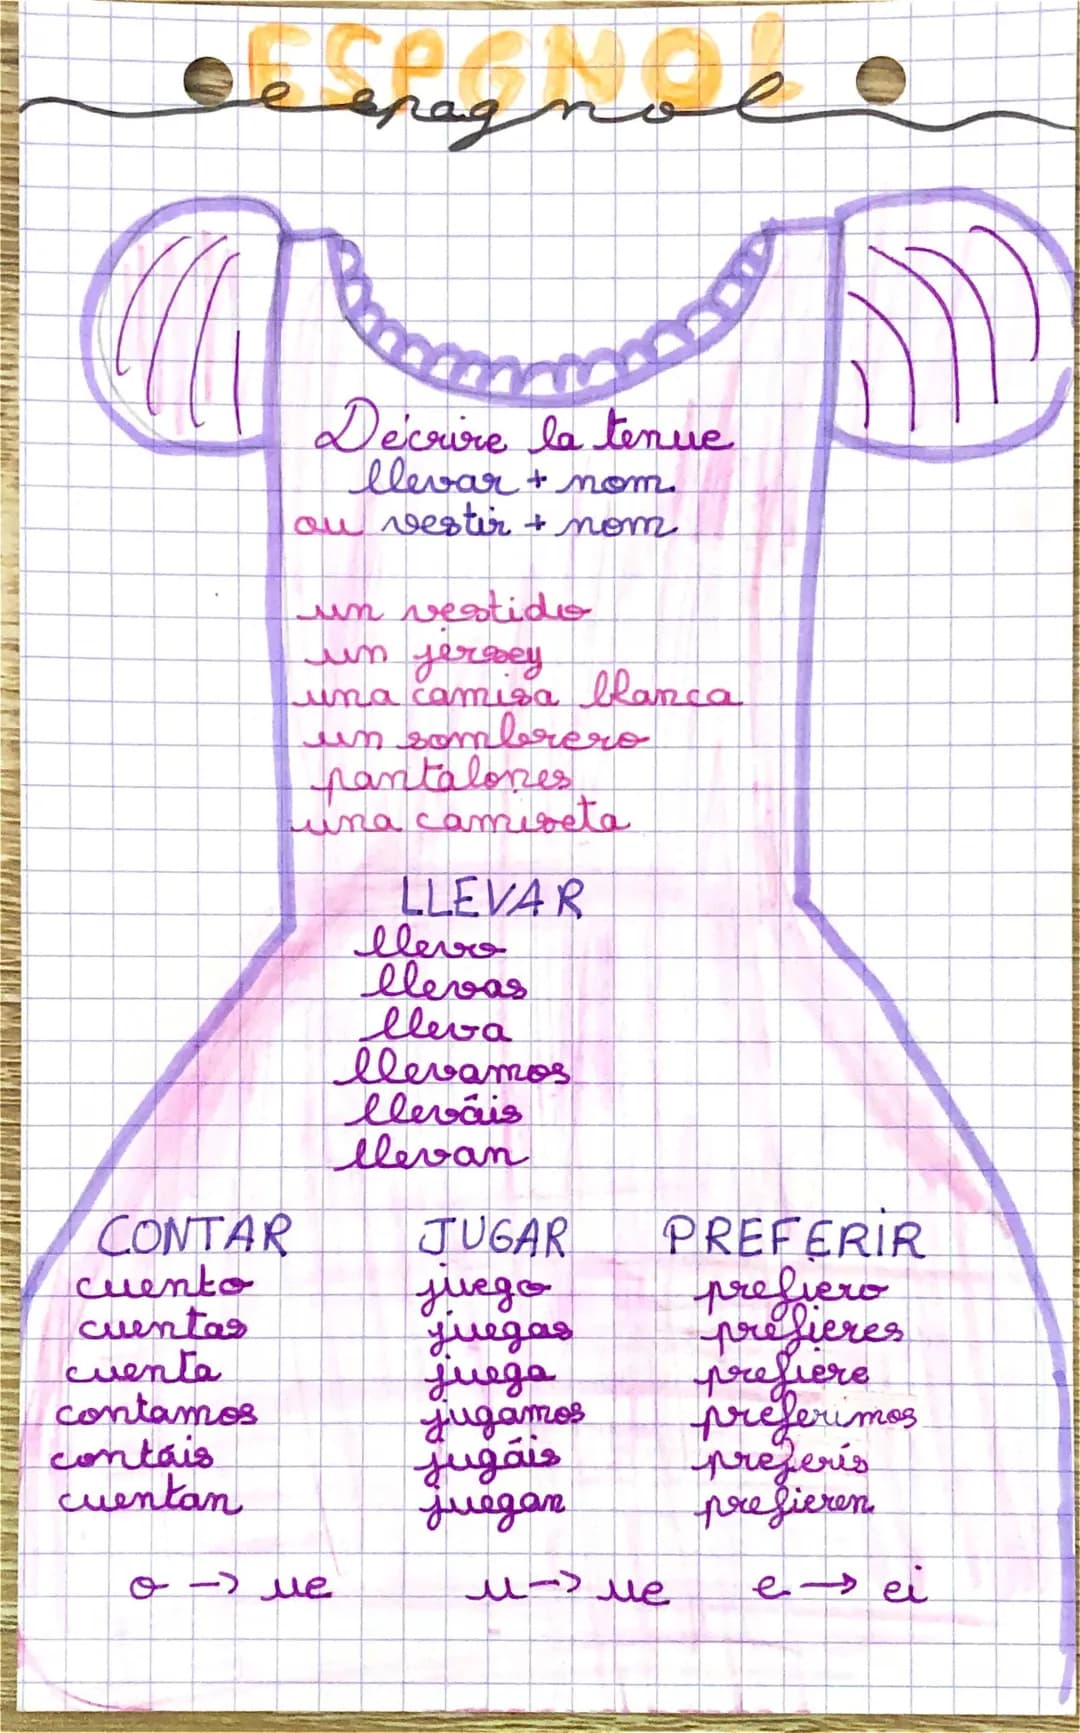 ESPGNOL
espagnol
Décrire la tenue
llevar + nom.
ou vestir + nom
un vestido
un jersey
una camisa blanca
un sombrero
pantalones
una camiseta
LLEVAR
llevo
llevas
lleva
llevamos
lleváis
llevan
CONTAR JUGAR PREFERIR
cuento juego prefiero
cuentas juegas prefieres
cuenta juega prefiere
contamos jugamos preferimos
contáis jugáis preferís
cuentan juegan prefieren
o -> ue u -> ue e -> ei